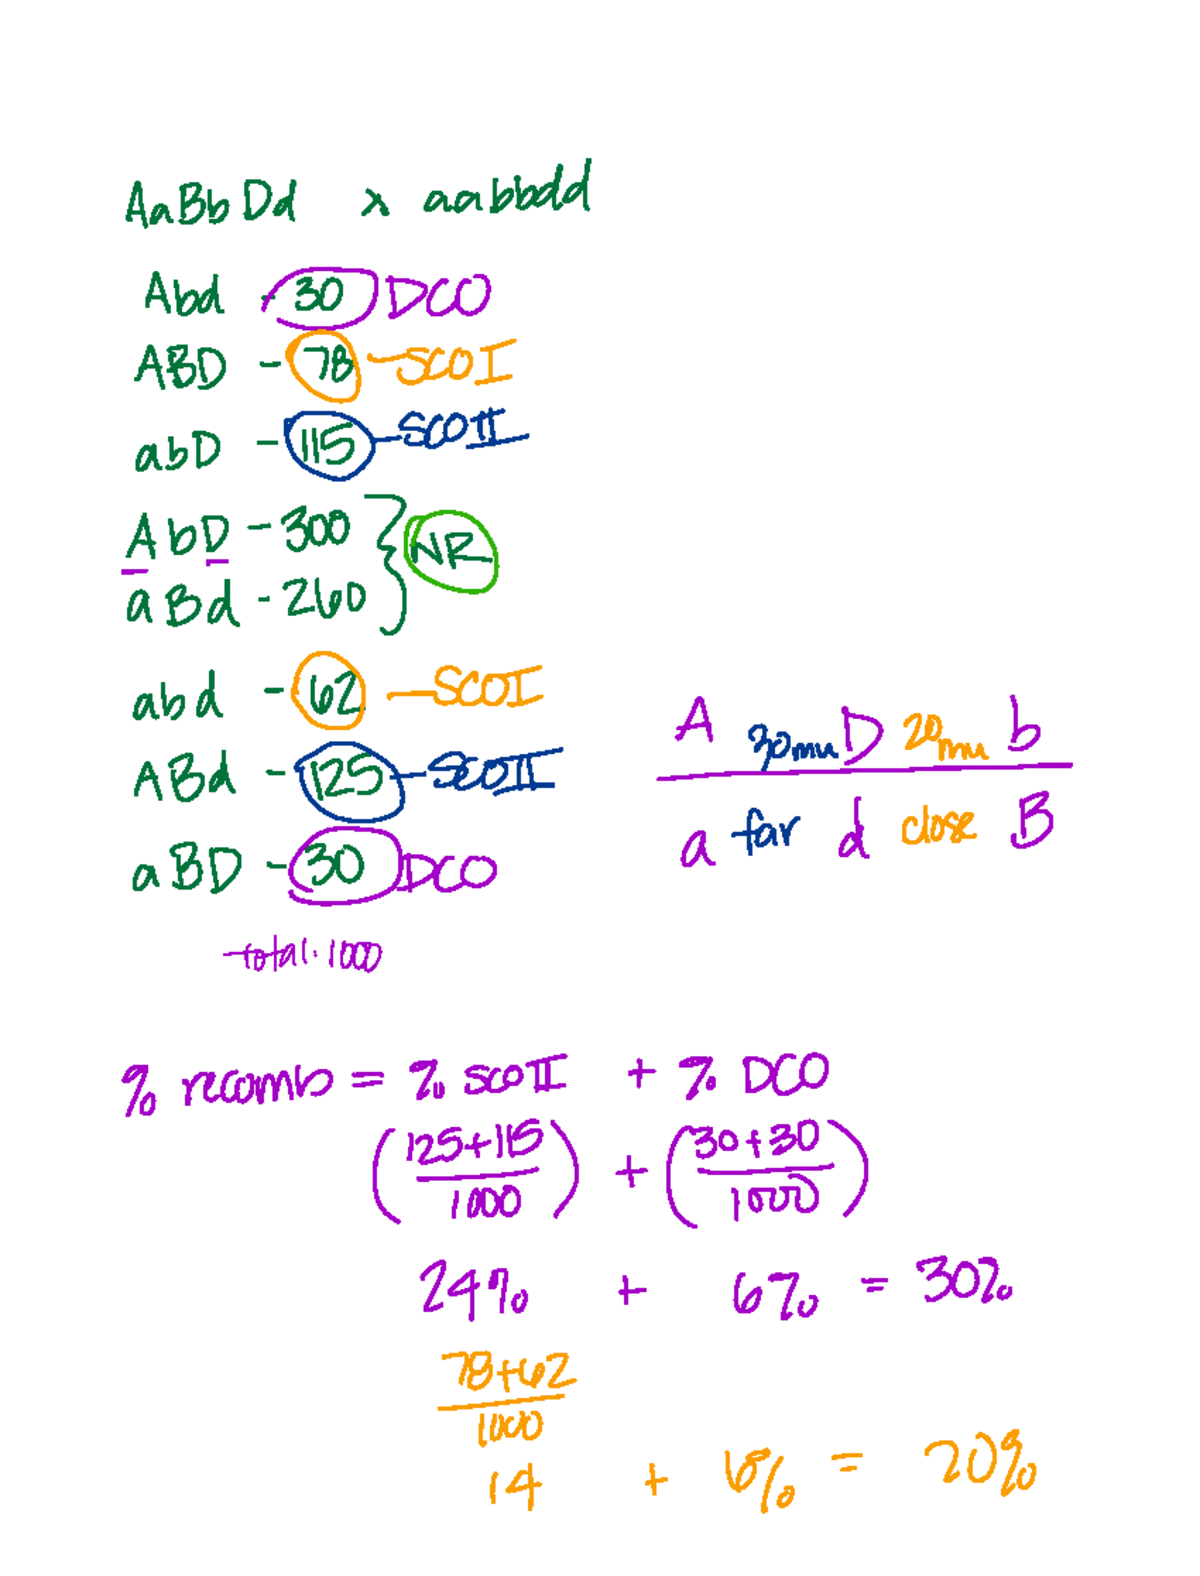 AaBbDd x aabbdd
Abd - 30 DCO
ABD - 78 - SCO I
abD - 115 - SCO II
AbD - 300
NR
aBd - 260
abd - 62 - SCO I
ABd - 125 - SCO II
aBD - 30 DCO
total: 1000
A 30mu D 20mu b
a far d close B
% recomb = % SCO II + % DCO
(125+115/1000) + (30+30/1000)
24% + 6% = 30%
78+62
1000
14 + 6% = 20%